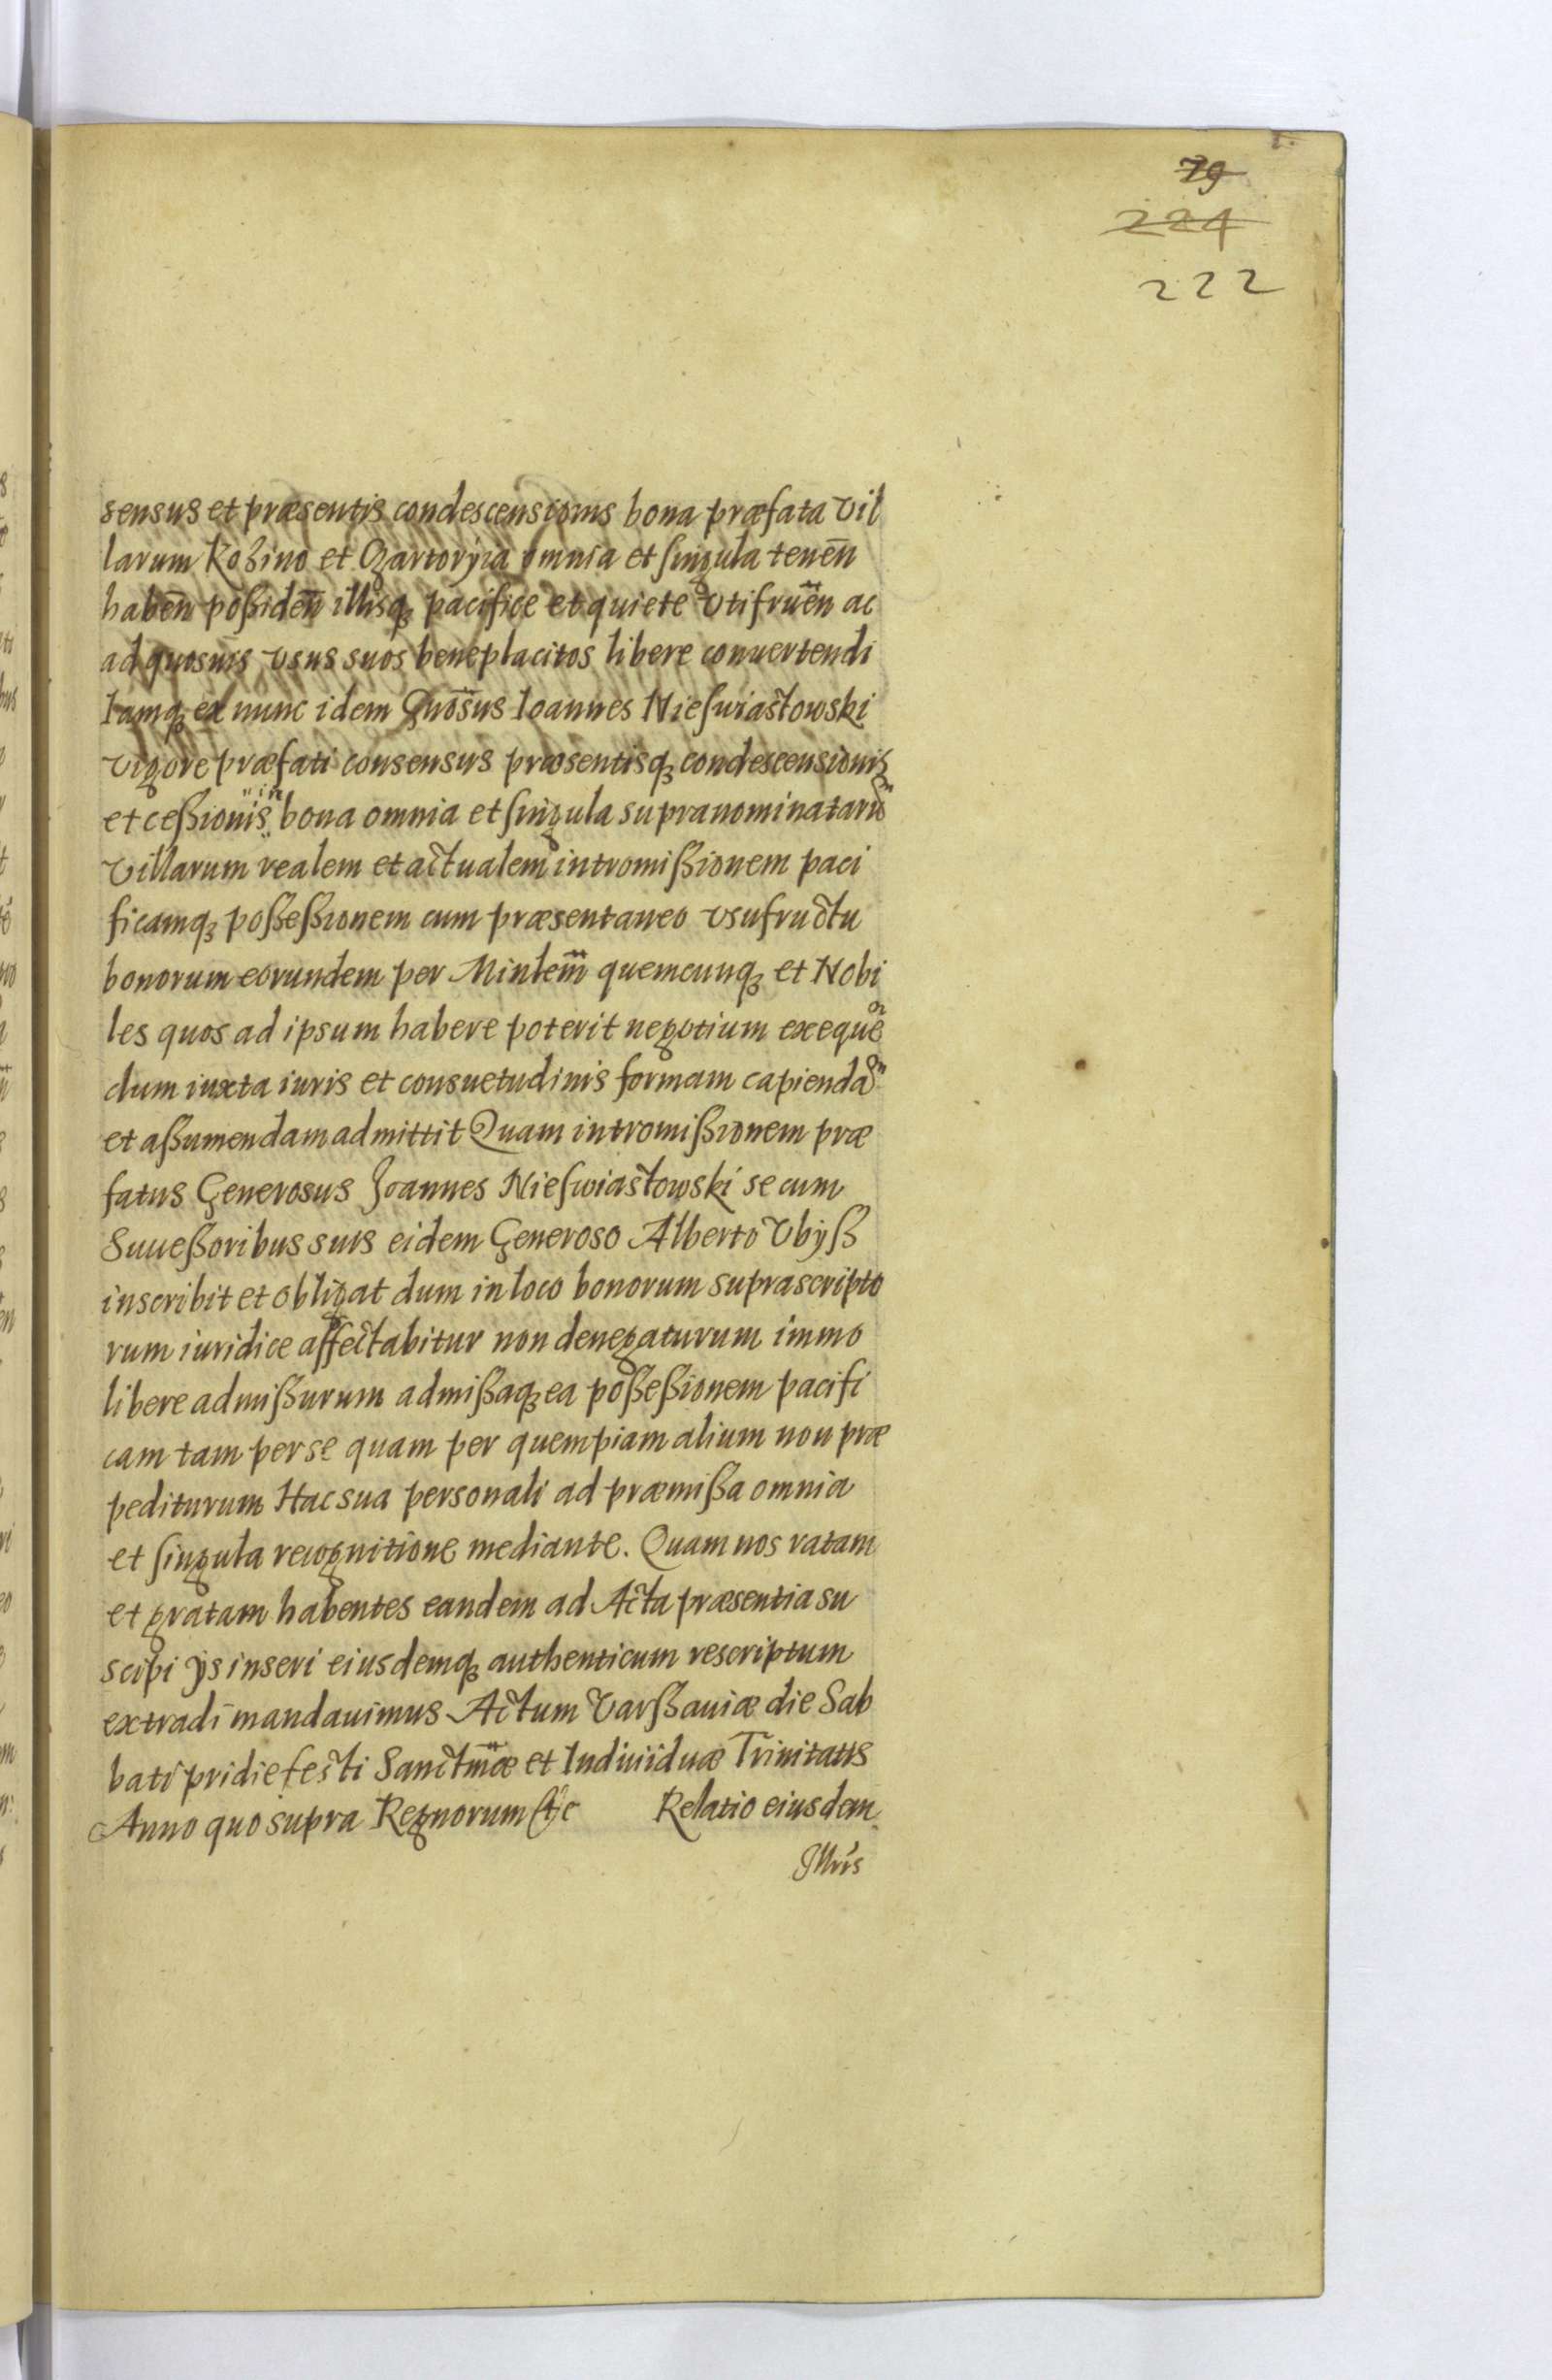 79
224
222
sensus et præsentis condescensionis bona præfata Vil
larum Kozino et Czartoryia omnia et singula tenen̄
haben̄ possiden̄ illisq3 pacifice et quiete Vtifruen̄ ac
ad quosuis Vsus suos beneplacitos libere conuertendi
Iamq3 ex nunc idem Gnōsus Ioannes Nieswiastowski
Vigore præfati consensus præsentisq3 condescensionis
et cessionis in bona omnia et singula supranominatarū
Villarum realem et actualem intromissionem paci
ficamq3 possessionem cum præsentaneo Vsufructu
bonorum eorundem per Minlem̄ quemcunq3 et Nobi
les quos ad ipsum habere poterit negotium exeque᷈
dum iuxta iuris et consuetudinis formam capiendā
et assumendam admittit Quam intromissionem præ
fatus Generosus Joannes Nieswiastowski se cum
Successoribus suis eidem Generoso Alberto Vbyss
inscribit et obligat dum in loco bonorum suprascripto
rum iuridice affectabitur non denegaturum immo
libere admissurum admissaq3 ea possessionem pacifi
cam tam per se quam per quempiam alium non præ
pediturum Hac sua personali ad præmissa omnia
et singula recognitione mediante. Quam nos ratam
et gratam habentes eandem ad Acta præsentia su
scipi ijs inseri eiusdemq3 authenticum rescriptum
extradi mandauimus Actum Varssauiæ die Sab
bati pridie festi Sanctm̄æ et Indiuiduæ Trinitatis
Anno quo supra Regnorum &c Relatio eiusdem
Jllris